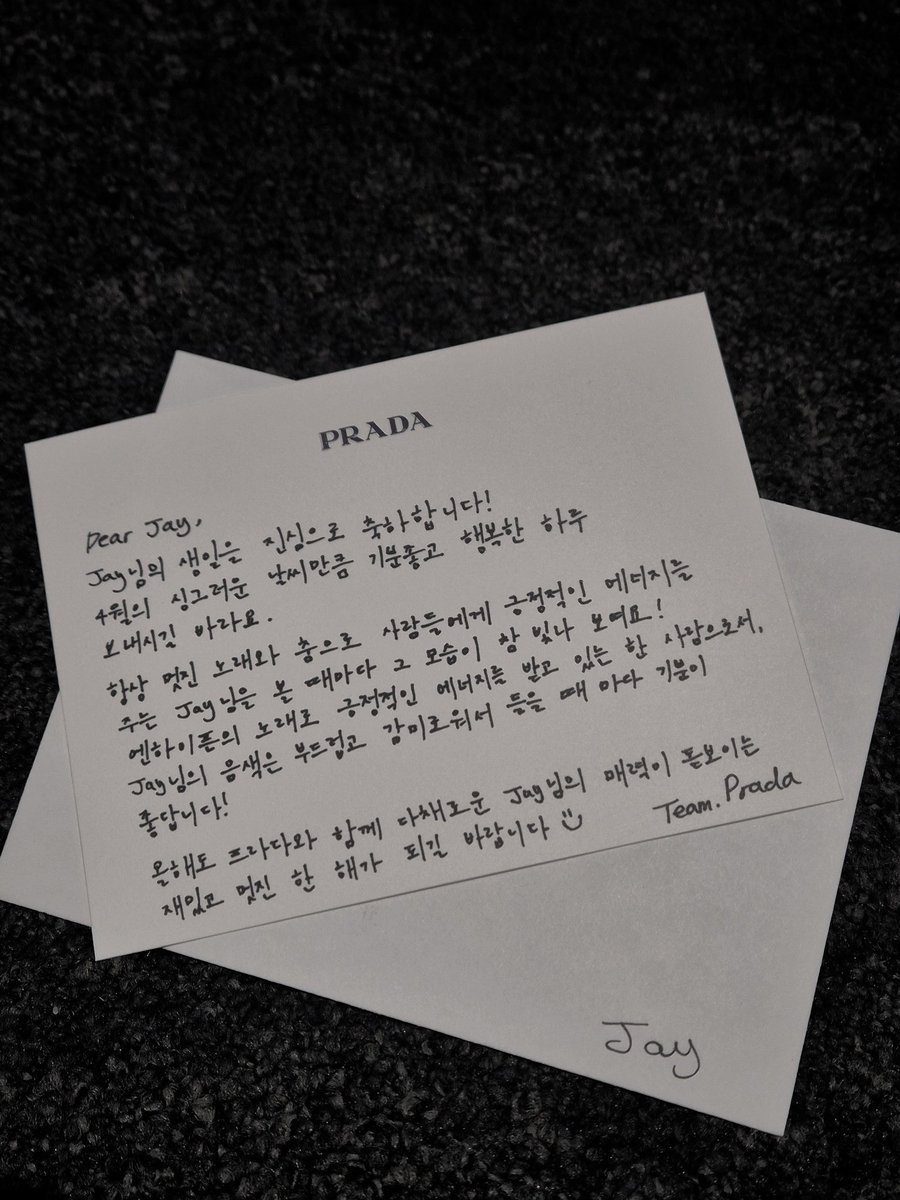 PRADA
Dear Jay,
Jay님의 생일을 진심으로 축하합니다!
4월의 싱그러운 날씨만큼 기분좋고 행복한 하루
보내시길 바라요.
항상 멋진 노래와 춤으로 사람들에게 긍정적인 에너지를
주는 Jay님을 볼 때마다 그 모습이 참 빛나 보여요!
엔하이픈의 노래로 긍정적인 에너지를 받고 있는 한 사람으로서,
Jay님의 음색은 부드럽고 감미로워서 들을 때 마다 기분이
좋답니다!
올해도 프라다와 함께 다채로운 Jay님의 매력이 돋보이는
재밌고 멋진 한 해가 되길 바랍니다
Team.Prada
Jay